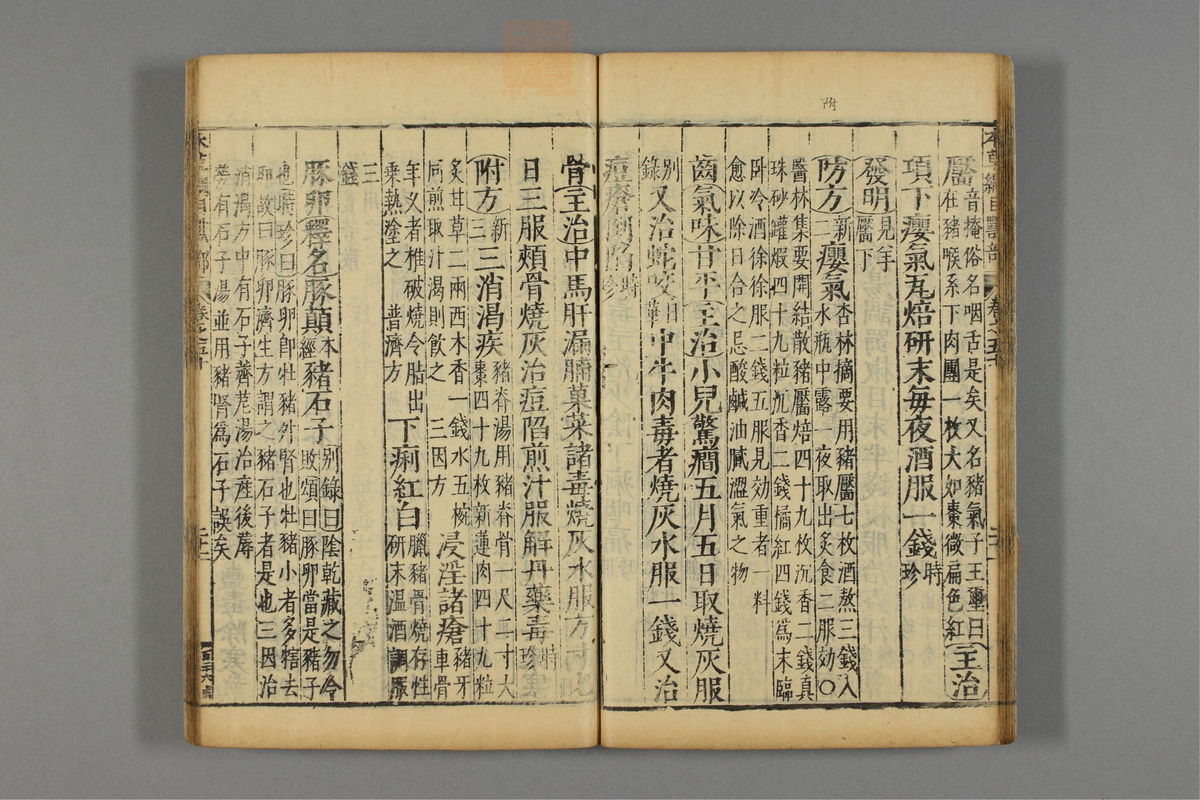 附
本草綱目獸部
卷之五十
靨音掩俗名咽舌是矣又名豬氣子王璽曰
在豬喉系下肉團一枚大如棗微扁色紅主治
項下癭氣瓦焙研末每夜酒服一錢時珍
發明見羊靨下
附方新二癭氣杏林摘要用豬靨七枚酒熬三錢入
水瓶中露一夜取出炙食二服効○
醫林集要開結散豬靨焙四十九枚沉香二錢真
珠砂罐煅四十九粒沉香二錢橘紅四錢爲末臨
臥冷酒徐徐服二錢五服見効重者一料
愈以除日合之忌酸鹹油膩澀氣之物
齒氣味甘平主治小兒驚癇五月五日取燒灰服
別錄又治蛇咬中牛肉毒者燒灰水服一錢又治
痘瘡倒陷時珍
骨主治中馬肝漏脯菓菜諸毒燒灰水服方寸匕
日三服頰骨燒灰治痘陷煎汁服解丹藥毒時珍
附方新三三消渴疾豬脊湯用豬脊骨一尺二寸大
棗四十九枚新蓮肉四十九粒
炙甘草二兩西木香一錢水五椀
同煎取汁渴則飲之 三因方浸淫諸瘡豬牙車骨
年久者椎破燒令脂出
乘熱塗之 普濟方下痢紅白臘豬骨燒存性
研末溫酒調服
三錢
豚卵釋名豚顛本經豬石子別錄別錄曰陰乾藏之勿令
敗頌曰豚卵當是豬子
也時珍曰豚卵卽牡豬外腎也牡豬小者多犗去
卵故曰豚卵濟生方謂之豬石子者是也三因治
消渴方中有石子薺苨湯治產後蓐
勞有石子湯並用豬腎爲石子誤矣
本草綱目獸部
卷之五十